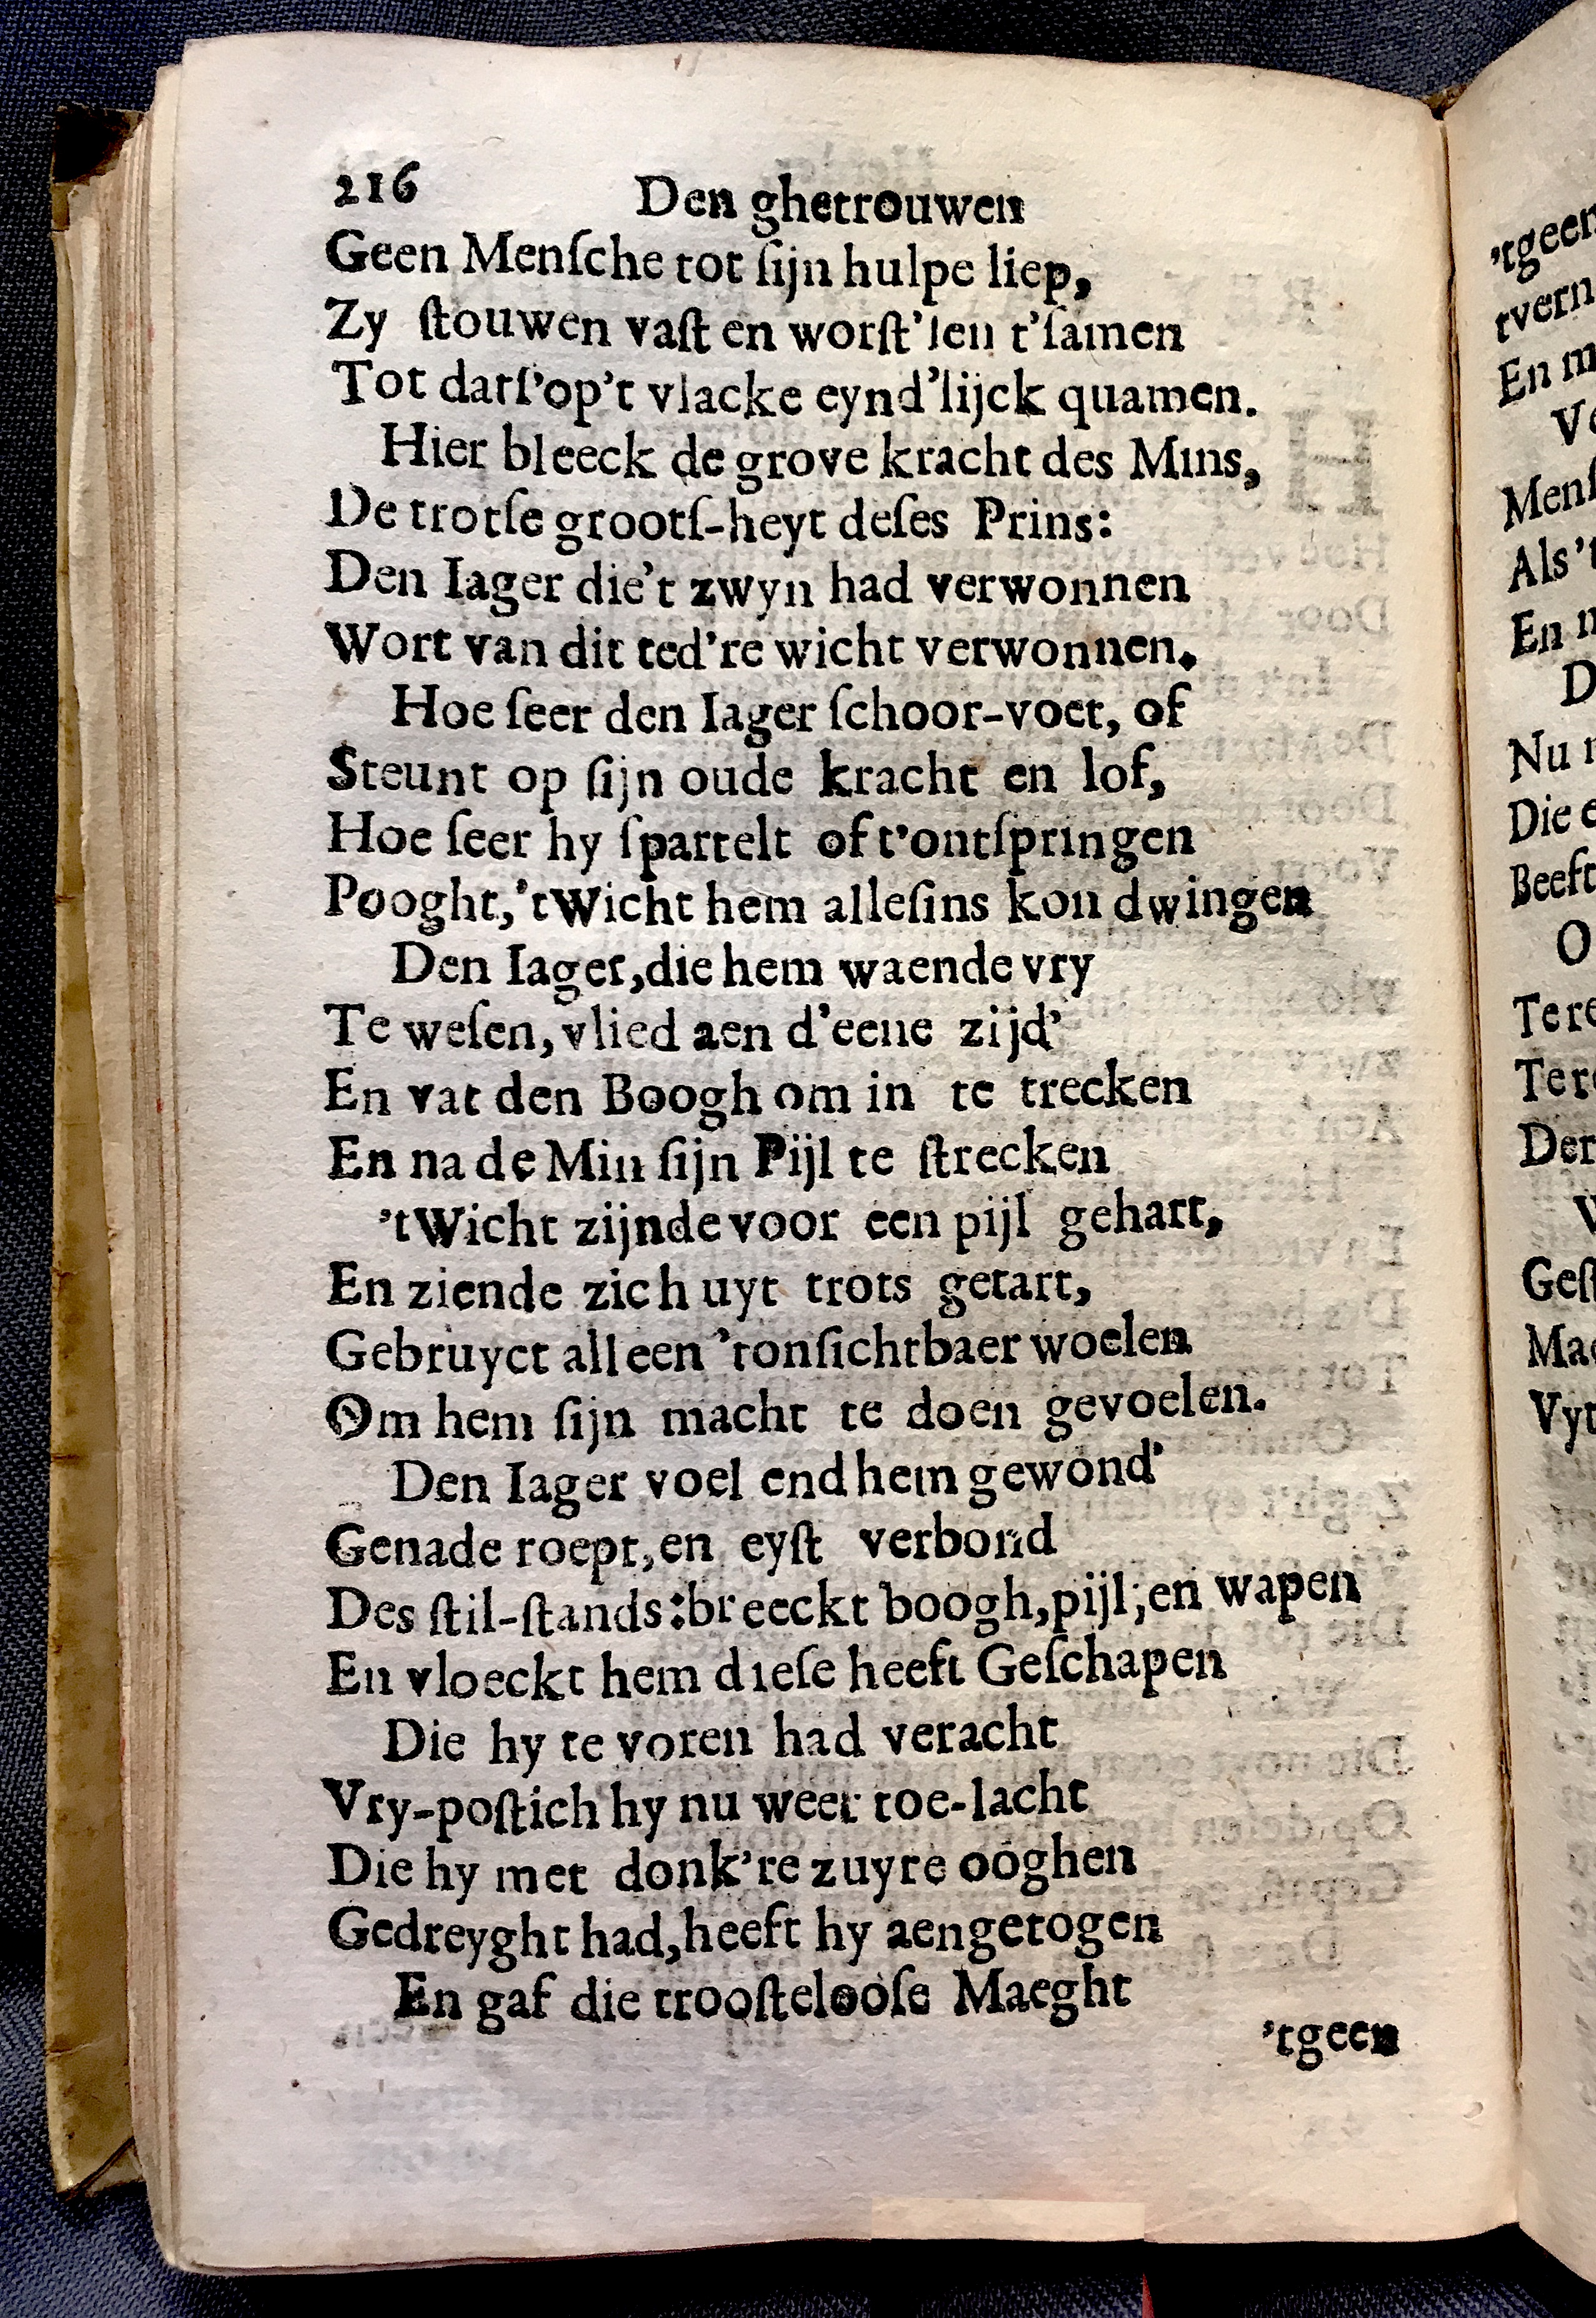 216 Den ghetrouwen
Geen Menſche tot ſijn hulpe liep,
Zy ſtouwen vaſt en worſt'len t'ſamen
Tot datſ'op't vlacke eynd'lijck quamen.
Hier bleeck de grove kracht des Mins,
De trotſe grootſ-heyt deſes Prins:
Den Iager die't zwyn had verwonnen
Wort van dit ted're wicht verwonnen.
Hoe ſeer den Iager ſchoor-voet, of
Steunt op ſijn oude kracht en lof,
Hoe ſeer hy ſpartelt of t'ontſpringen
Pooght, 't Wicht hem alleſins kon dwingen
Den Iager, die hem waende vry
Te weſen, vlied aen d'eene zijd'
En vat den Boogh om in te trecken
En na de Min ſijn Pijl te ſtrecken
't Wicht zijnde voor een pijl gehart,
En ziende zich uyt trots getart,
Gebruyct alleen 'tonſichtbaer woelen
Om hem ſijn macht te doen gevoelen.
Den Iager voel end hem gewond'
Genade roept, en eyſt verbond
Des ſtil-ſtands: breeckt boogh, pijl; en wapen
En vloeckt hem dieſe heeft Geſchapen
Die hy te voren had veracht
Vry-poſtich hy nu weer toe-lacht
Die hy met donk're zuyre ooghen
Gedreyght had, heeft hy aengetogen
En gaf die trooſteloôſe Maeght
'tgeen
'tgeen
tvern
En m
Menſ
Als 't
En
D
Nu
Die e
Beeſt
O
Tere
Tere
Der
Geſ
Mae
Vyt